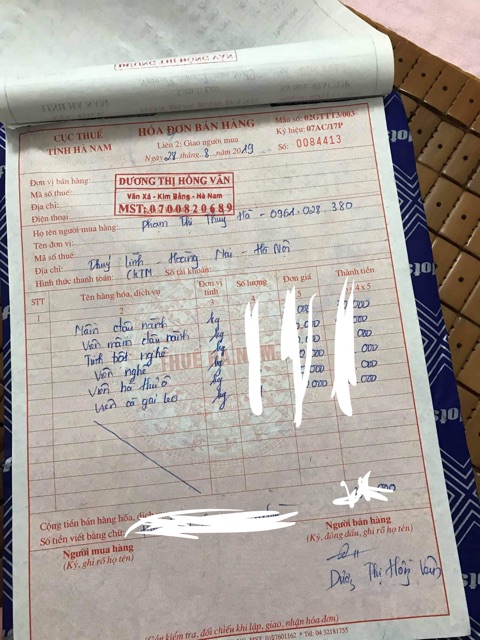 DƯƠNG THỊ HỒNG VÂN
CỤC THUẾ
TỈNH HÀ NAM
HÓA ĐƠN BÁN HÀNG
Liên 2: Giao người mua
Ngày 28 tháng 8 năm 2019
Mẫu số: 02GTTT3/003
Ký hiệu: 07AC/17P
Số: 0084413
Đơn vị bán hàng:
Mã số thuế:
Địa chỉ:
Điện thoại:
DƯƠNG THỊ HỒNG VÂN
Văn Xá - Kim Bảng - Hà Nam
MST: 0700820689
Họ tên người mua hàng: Phạm Thị Thuý Hà - 0961.028.380
Tên đơn vị:
Mã số thuế:
Địa chỉ: Thuý Lĩnh - Hoàng Mai - Hà Nội
Hình thức thanh toán: CK/TM Số tài khoản:
STT Tên hàng hóa, dịch vụ Đơn vị tính Số lượng Đơn giá Thành tiền
2 3 5 4 x 5
1 Mầm đậu nành kg 000
Viên mầm đậu nành kg 000
Tinh bột nghệ kg 000
Viên nghệ kg 000
Viên hà thủ ô kg 000
Viên cà gai leo kg 000
THUẾ HÀ NAM
Cộng tiền bán hàng hóa, dịch
Số tiền viết bằng chữ:
Người mua hàng
(Ký, ghi rõ họ tên)
Người bán hàng
(Ký, đóng dấu, ghi rõ họ tên)
Dương Thị Hồng Vân
(Cần kiểm tra, đối chiếu khi lập, giao, nhận hóa đơn)